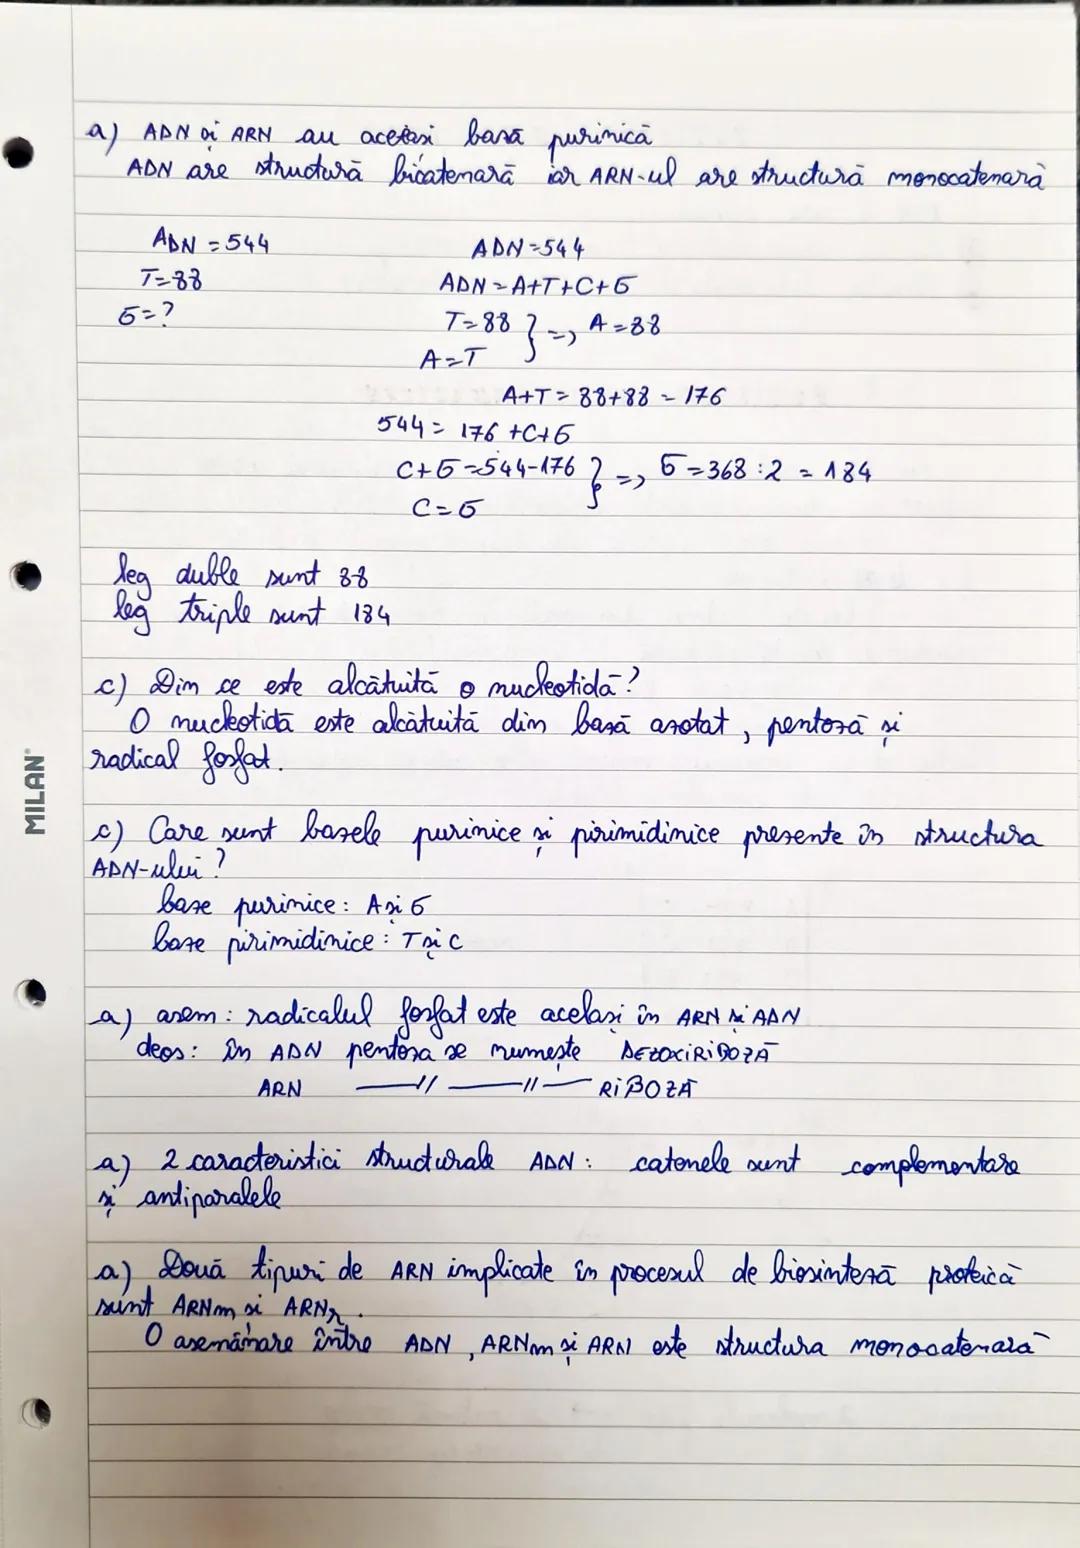 a) ADN și ARN au același bază purinică
ADN are structură bicatenară iar ARN-ul are structură monocatenară
ADN = 544
T=88
G=?
ADN=544
ADN = A+T+C+G
T=88 } => A=88
A=T
A+T = 88+88 = 176
544 = 176 +C+G
C+G=544-176 } => G=368:2 = 184
C=G
leg duble sunt 88
leg triple sunt 184
c) Din ce este alcătuită o nucleotidă?
O nucleotidă este alcătuită din bază azotat, pentoză și
radical fosfat.
c) Care sunt bazele purinice și pirimidinice prezente în structura
ADN-ului?
baze purinice: A și G
baze pirimidinice: T și C
a) asem: radicalul fosfat este același în ARN și ADN
deos: în ADN pentoza se numește DEZOXIRIBOZĂ
ARN —//—//— RIBOZĂ
a) 2 caracteristici structurale ADN: catenele sunt complementare
și antiparalele
a) Două tipuri de ARN implicate în procesul de biosinteză proteică
sunt ARNm și ARNr.
O asemănare între ADN, ARNm și ARN este structura monocatenară
MILAN